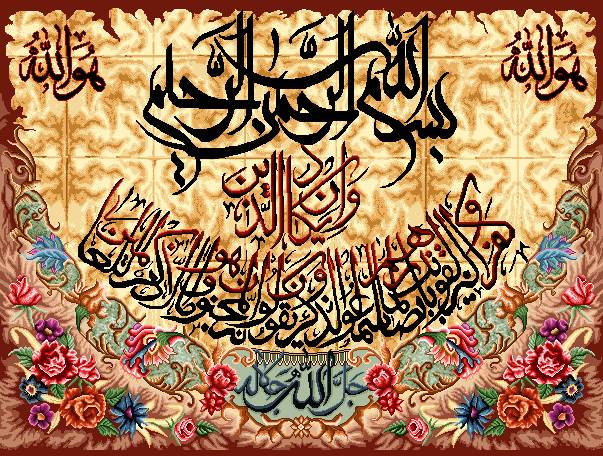 هو الله
هو الله
بسم الله الرحمن الرحيم
وإن يكاد الذين
كفروا ليزلقونك بأبصارهم لما سمعوا الذكر ويقولون إنه لمجنون وما هو إلا ذكر للعالمين
الله جل جلاله